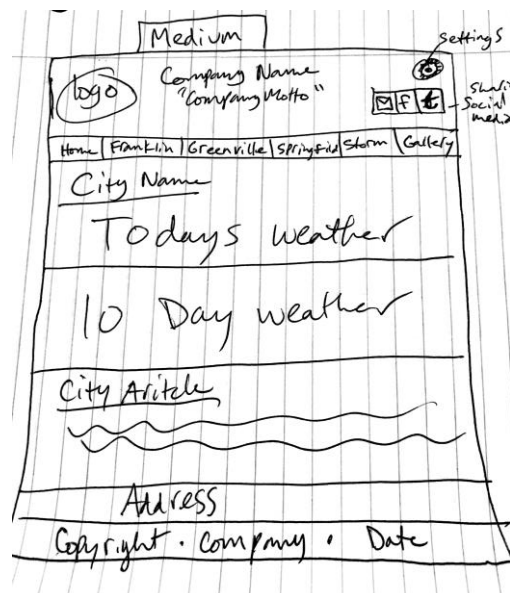 Medium
settings
logo
Company Name
"Company Motto"
f t
Social
media
Home Franklin Greenville Springfield Storm Gallery
City Name
Todays weather
10 Day weather
City Aritcle
Address
Copyright · Company · Date